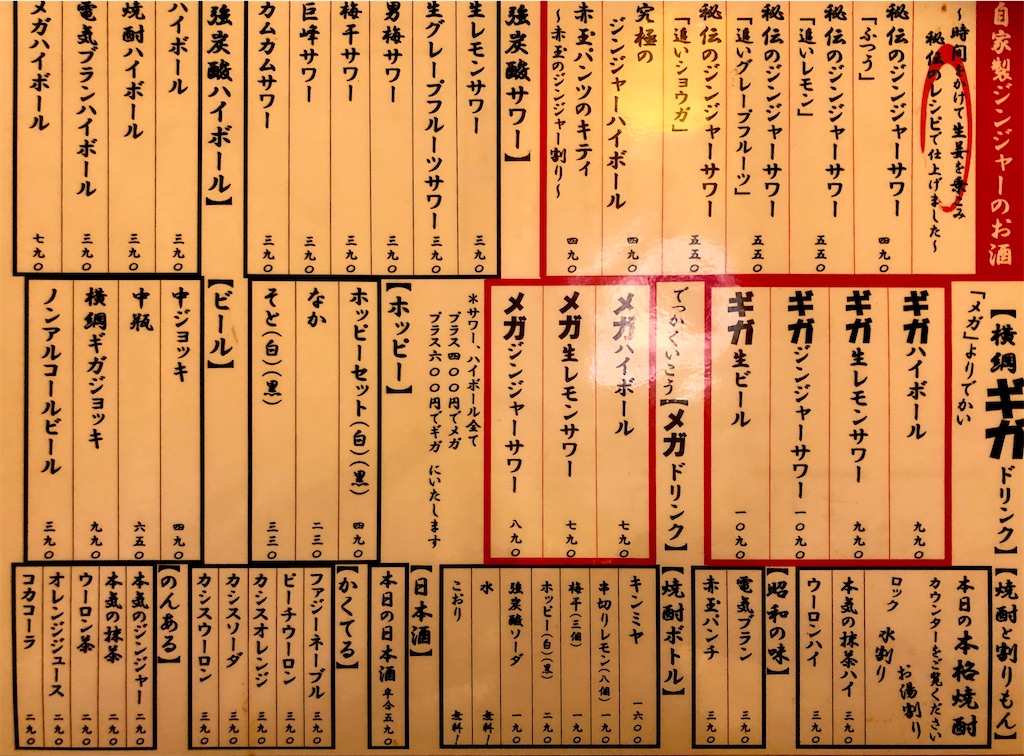 自家製ジンジャーのお酒
～時間をかけて生姜を
秘伝のレシピで仕上げました～
秘伝のジンジャーサワー
「ふつう」
四九〇
秘伝のジンジャーサワー
「追いレモン」
五五〇
秘伝のジンジャーサワー
「追いグレープフルーツ」
五五〇
秘伝のジンジャーサワー
「追いショウガ」
五五〇
究極の
ジンジャーハイボール
四九〇
赤玉パンツのキティ
～赤玉のジンジャー割り～
四九〇
強炭酸サワー】
生レモンサワー 三九〇
生グレープフルーツサワー 三九〇
男梅サワー 三九〇
梅干サワー 三九〇
巨峰サワー 三九〇
カムカムサワー 三九〇
強炭酸ハイボール】
ハイボール 三九〇
焼酎ハイボール 三九〇
電気ブランハイボール 三九〇
メガハイボール 七九〇
【横綱ギガドリンク】
「メガ」よりでかい
ギガハイボール 九九〇
ギガ生レモンサワー 九九〇
ギガジンジャーサワー 一〇九〇
ギガ生ビール 一〇九〇
でっかくいこう【メガドリンク】
メガハイボール 七九〇
メガ生レモンサワー 七九〇
メガジンジャーサワー 八九〇
＊サワー、ハイボール全て
プラス四〇〇円でメガ
プラス六〇〇円でギガ にいたします
【ホッピー】
ホッピーセット(白)(黒) 四九〇
なか 二三〇
そと(白)(黒) 三三〇
【ビール】
中ジョッキ 四九〇
中瓶 六五〇
横綱ギガジョッキ 九九〇
ノンアルコールビール 三九〇
【焼酎と割りもん】
本日の本格焼酎
カウンターをご覧ください
ロック 水割り お湯割り
本気の抹茶ハイ 三九〇
ウーロンハイ 三九〇
【昭和の味】
電気ブラン 三九〇
赤玉パンチ 三九〇
【焼酎ボトル】
キンミヤ 一六〇〇
串切りレモン(八個) 一九〇
梅干(三個) 一九〇
ホッピー(白)(黒) 二九〇
強炭酸ソーダ 一九〇
水 無料！
こおり 無料！
【日本酒】
本日の日本酒 半合五九〇
【かくてる】
ファジーネーブル 三九〇
ピーチウーロン 三九〇
カシスオレンジ 三九〇
カシスソーダ 三九〇
カシスウーロン 三九〇
【のんある】
本気のジンジャー 二九〇
本気の抹茶 二九〇
ウーロン茶 二九〇
オレンジジュース 二九〇
コカコーラ 二九〇